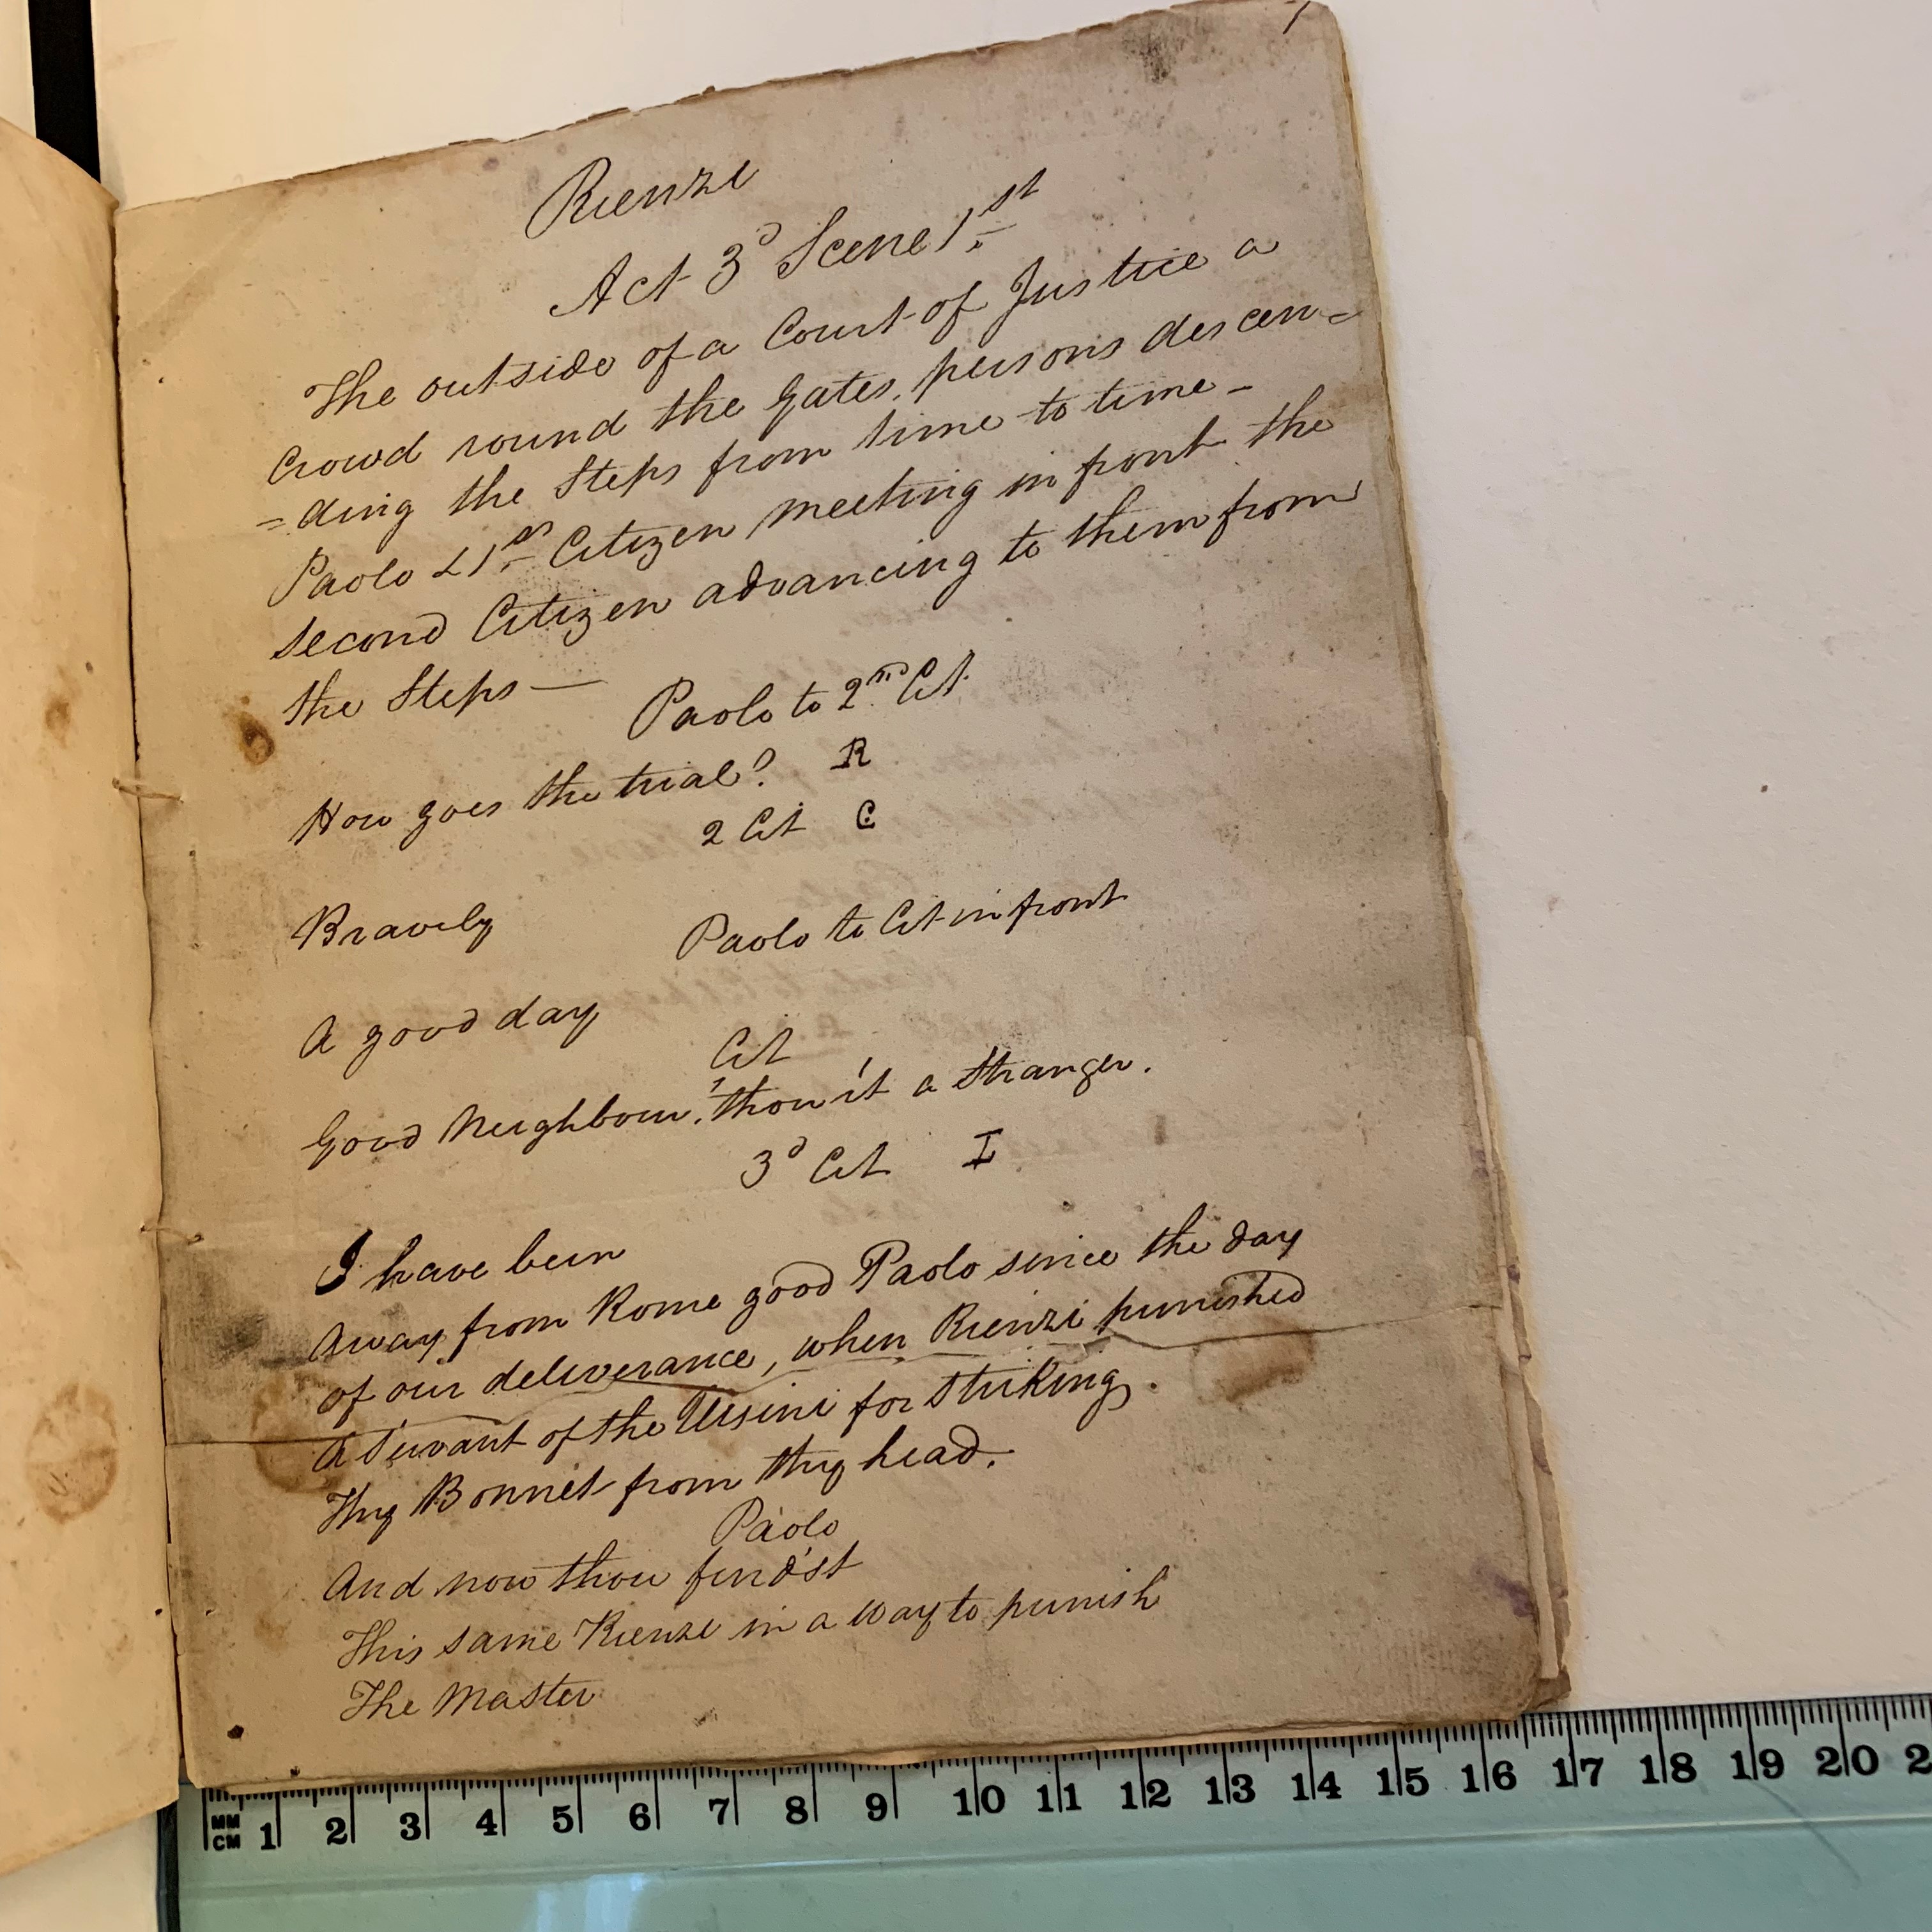 1
Rienzi
Act 3d Scene 1st
The outside of a Court of Justice a
Crowd round the Gates, persons descen=
=ding the Steps from time to time-
Paolo & 1st Citizen meeting in front the
second Citizen advancing to them from
the Steps—
Paolo to 2nd Cit
How goes the trial? R
2 Cit C
Bravely
Paolo to Cit in front
A good day
Cit
Good Neighbour, 'thou'rt a Stranger.
3d Cit L
I have been
Away from Rome good Paolo since the day
of our deliverance, when Rienzi punished
A Servant of the Ursini for Striking
Thy Bonnet from thy head.
Paolo
And now thou find'st
This same Rienzi in a way to punish
The Master
MM
CM 1 2 3 4 5 6 7 8 9 10 11 12 13 14 15 16 17 18 19 20 2